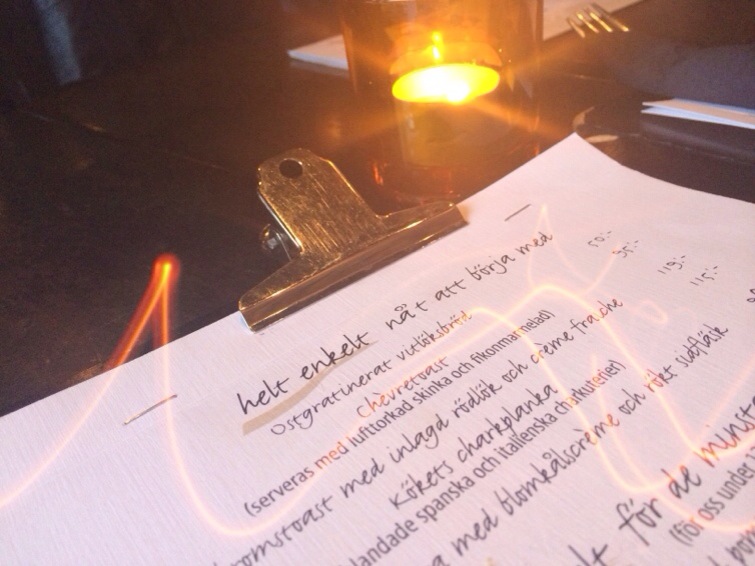 helt enkelt nåt att börja med
Ostgratinerat vitlöksbröd 50:-
Chèvretoast 95:-
(serveras med lufttorkad skinka och fikonmarmelad)
med inlagd rödlök och crème fraiche 119:-
Kökets charkplanka 115:-
spanska och italienska charkuterier)
med blomkålscrème och rökt sidfläsk
för de minsta
(för oss under